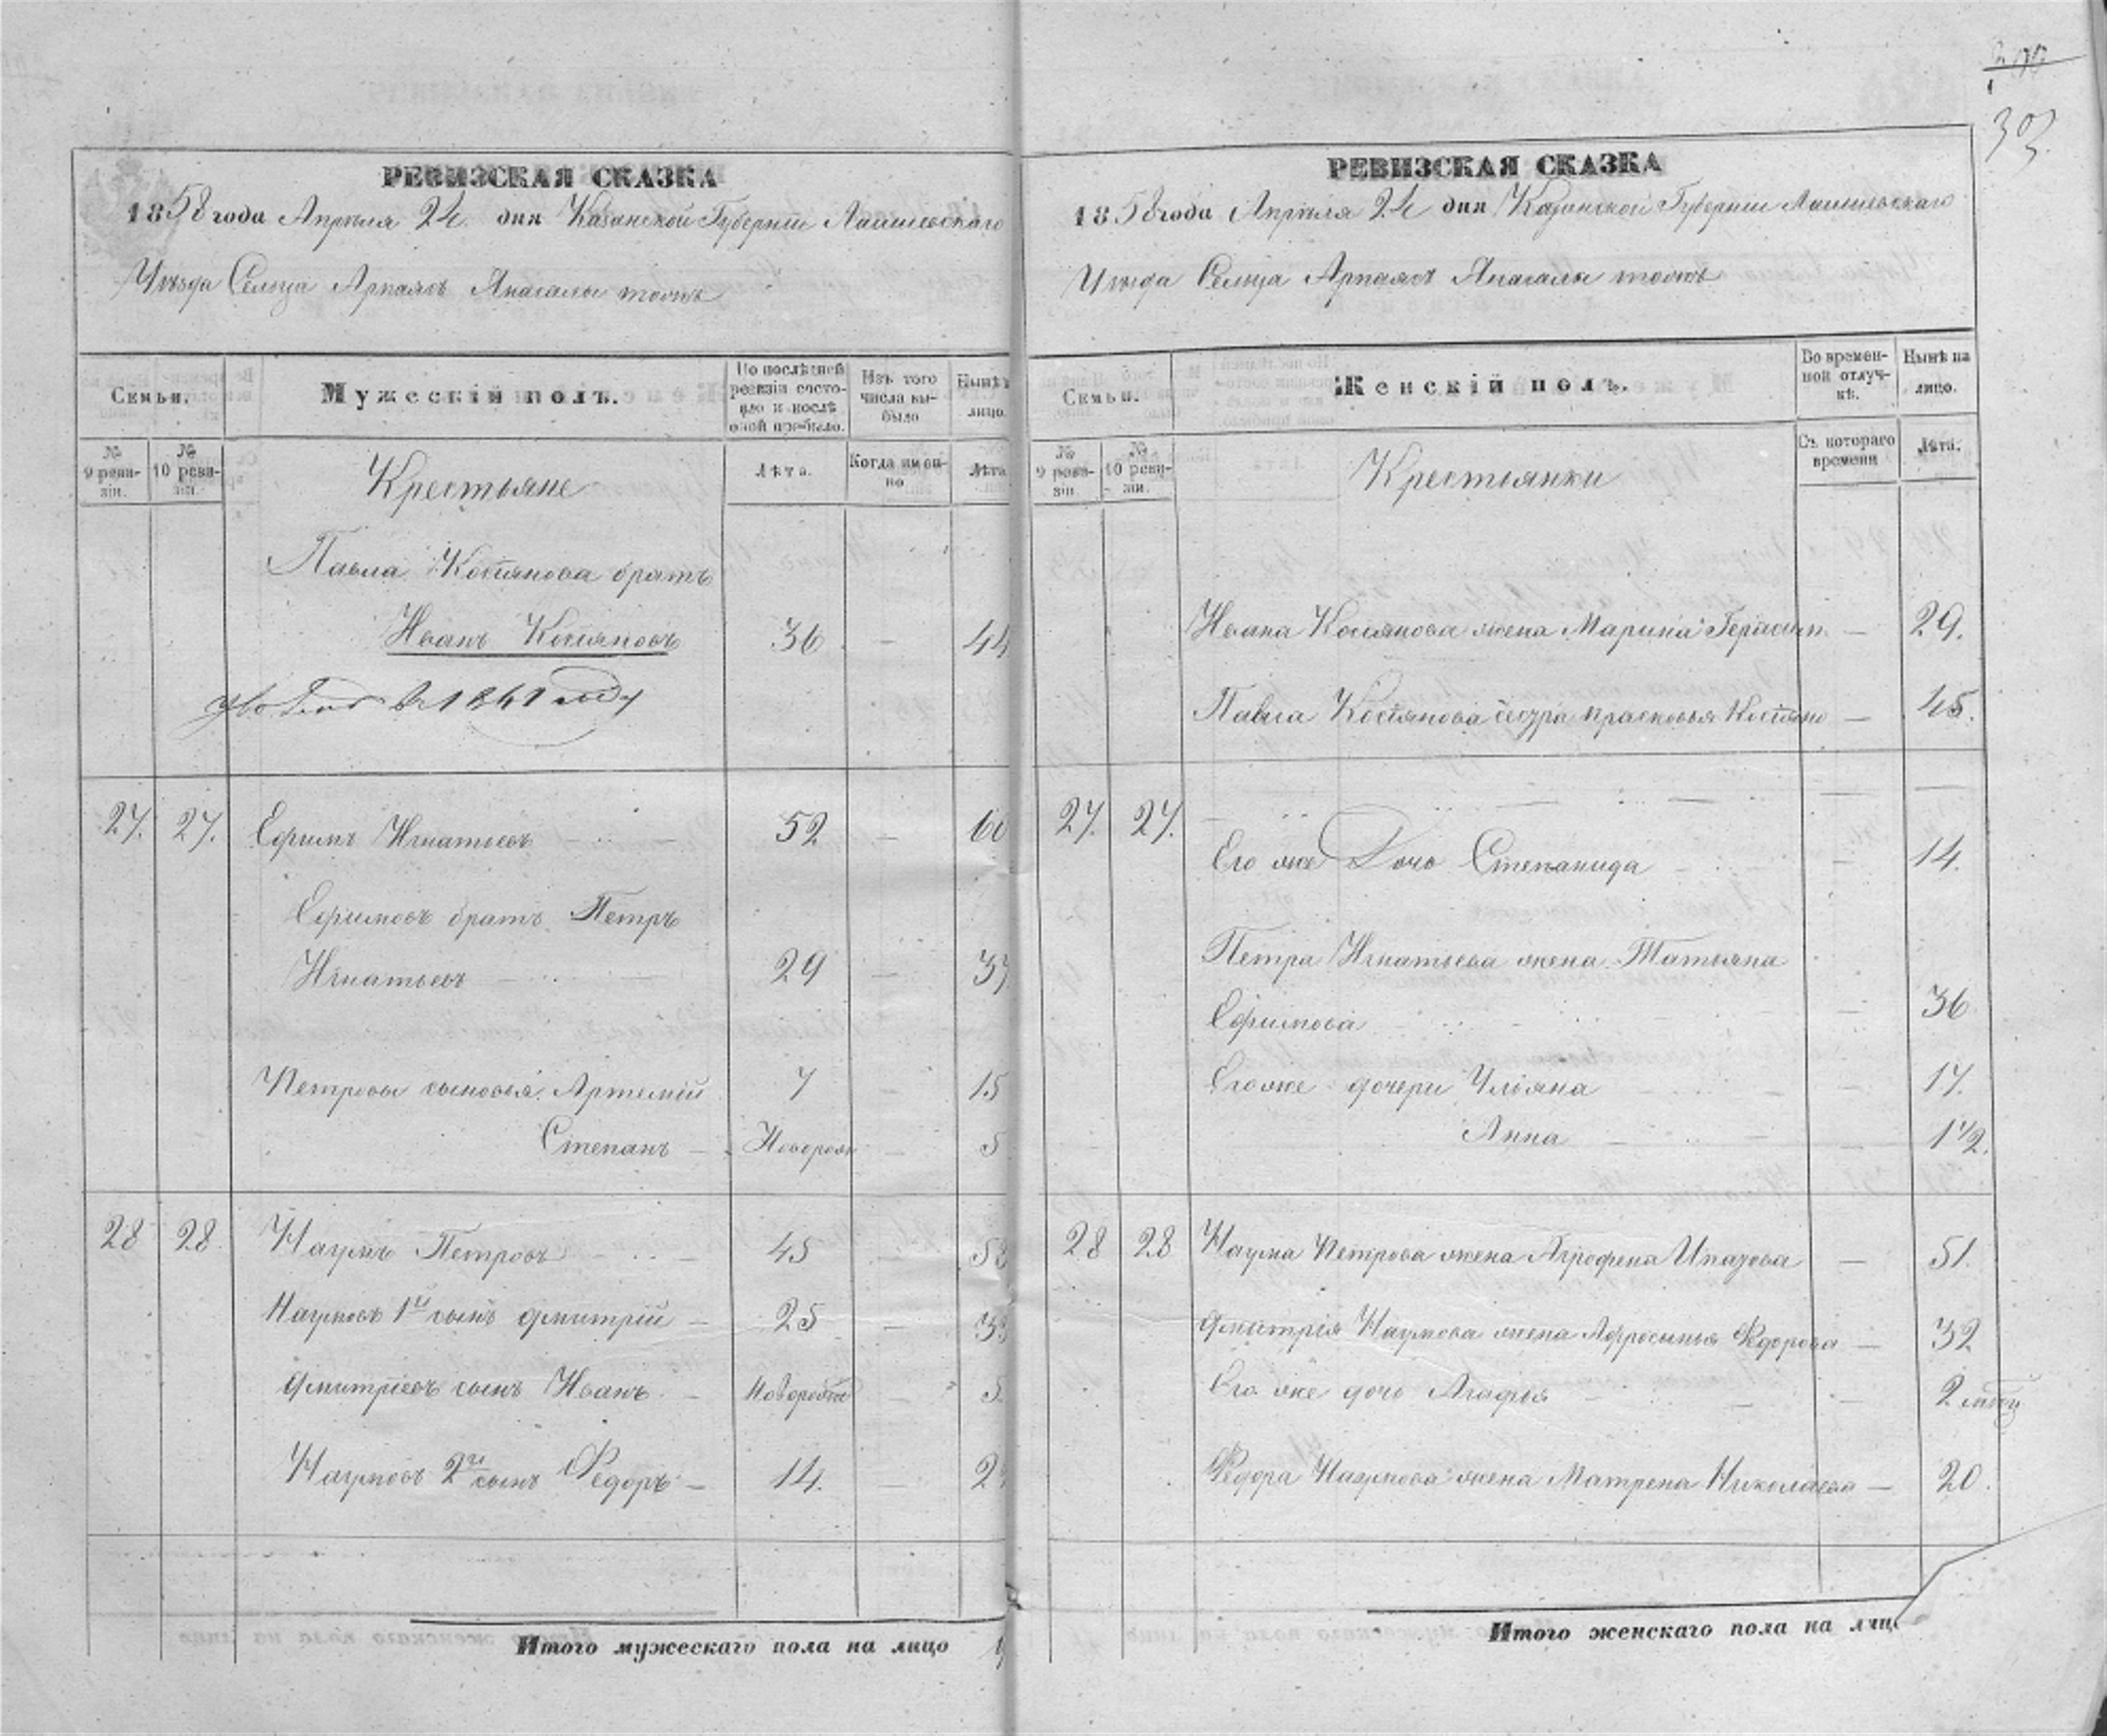 303
РЕВИЗСКАЯ СКАЗКА
1858 года Апрѣля 24 дня Казанской Губерніи Лаишевскаго
Уѣзда Сельца Арпаязъ тожъ
Семьи.
Мужескій полъ.
По послѣдней ревизіи состояло и послѣ оной прибыло.
Изъ того числа выбыло
Нынѣ
лицо.
№ 9 ревизіи.
№ 10 ревизіи.
Крестьяне
Лѣта.
Когда именно
Лѣта
Павла братъ
Иванъ 36 — 44
в 1861 году
27. 27. Ефимъ Игнатьевъ — 52 — 60
Ефимовъ братъ Петръ
Игнатьевъ — 29 — 37
Петровы сыновья Артемій 7 — 15
Степанъ — Новорож — 5
28 28 Наумъ Петровъ — 45 — 53
Наумовъ 1й сынъ Дмитрій — 25 — 33
Дмитріевъ сынъ Иванъ — — 5
Наумовъ 2й сынъ Федоръ — 14. — 2
Итого мужескаго пола на лицо
РЕВИЗСКАЯ СКАЗКА
1858 года Апрѣля 24 дня Казанской Губерніи Лаишевскаго
Уѣзда Сельца Арпаязъ тожъ
Семьи.
Женскій полъ.
Во временной отлучкѣ.
Нынѣ на лицо.
№ 9 ревизіи
№ 10 ревизіи.
Крестьянки
Съ котораго времени
Лѣта.
Ивана жена Марина Герасим — 29.
Павла сестра Прасковья — 45.
27. 27.
Его же Дочь Степанида — 14.
Петра Игнатьева жена Татьяна
Ефимова — 36
Его же дочери Ульяна — 17.
Анна — 1 1/2.
28 28 Наума Петрова жена Агрофена — 51.
Дмитрія Наумова жена Афросинья Федорова — 32
Его же дочь Агафья — 2
Федора Наумова жена Матрена Николаева — 20.
Итого женскаго пола на лиц